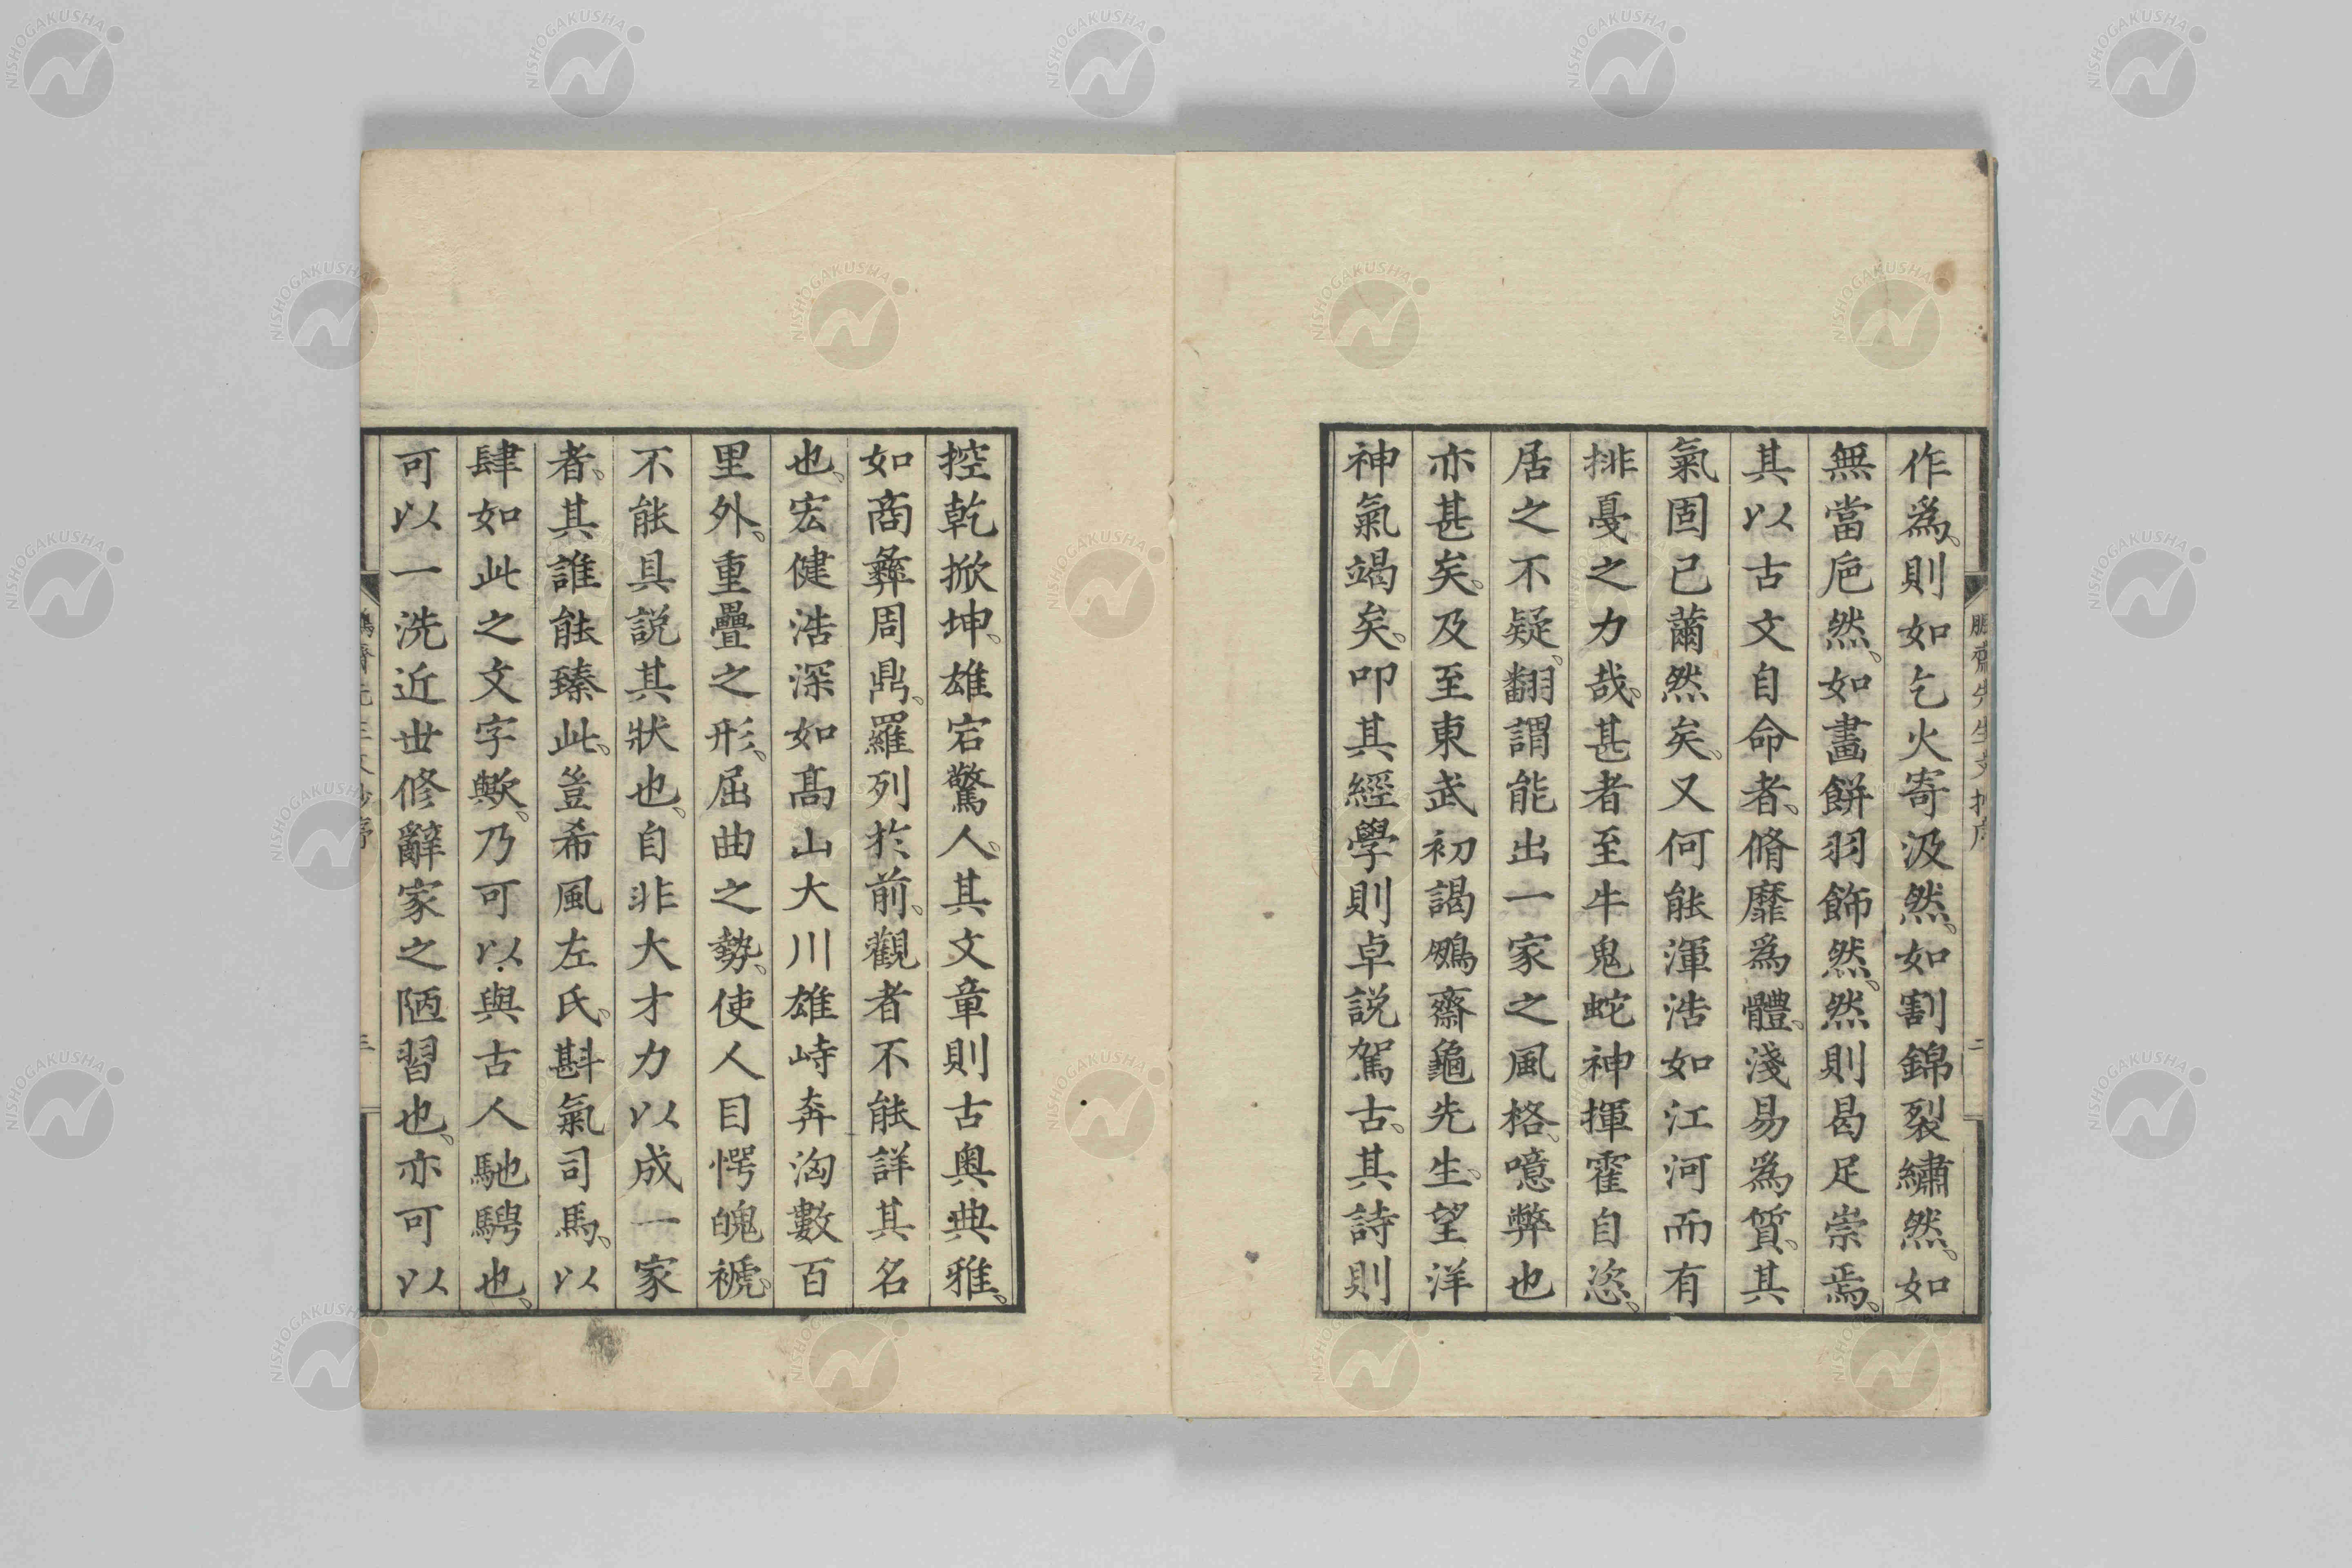 作爲。則如乞火寄汲然。如割錦裂繡然。如
無當巵然。如畫餅羽飾然。然則曷足崇焉。
其以古文自命者、脩靡爲體、淺易爲質、其
氣固已薾然矣。又何能渾浩如江河而有
排戞之力哉。甚者至牛鬼蛇神揮霍自恣。
居之不疑。翻謂能出一家之風格。噫弊也
亦甚矣。及至東武初謁鵬齋龜先生。望洋
神氣竭矣。叩其經學則卓説駕古。其詩則
控乾掀坤。雄宕驚人。其文章則古奥典雅。
如商彝周鼎。羅列於前。觀者不能詳其名
也。宏健浩深如高山大川雄峙奔洶數百
里外。重疊之形、屈曲之勢、使人目愕魄褫。
不能具説其狀也。自非大才力以成一家
者。其誰能臻此。豈希風左氏。斟氣司馬。以
肆如此之文字歟。乃可以與古人馳騁也。
可以一洗近世修辭家之陋習也。亦可以
鵬齋先生文抄序 二
三
NISHOGAKUSHA